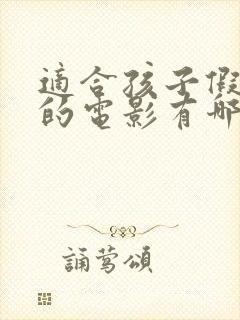 適合孩子假
的電影有哪
誦鶯頌